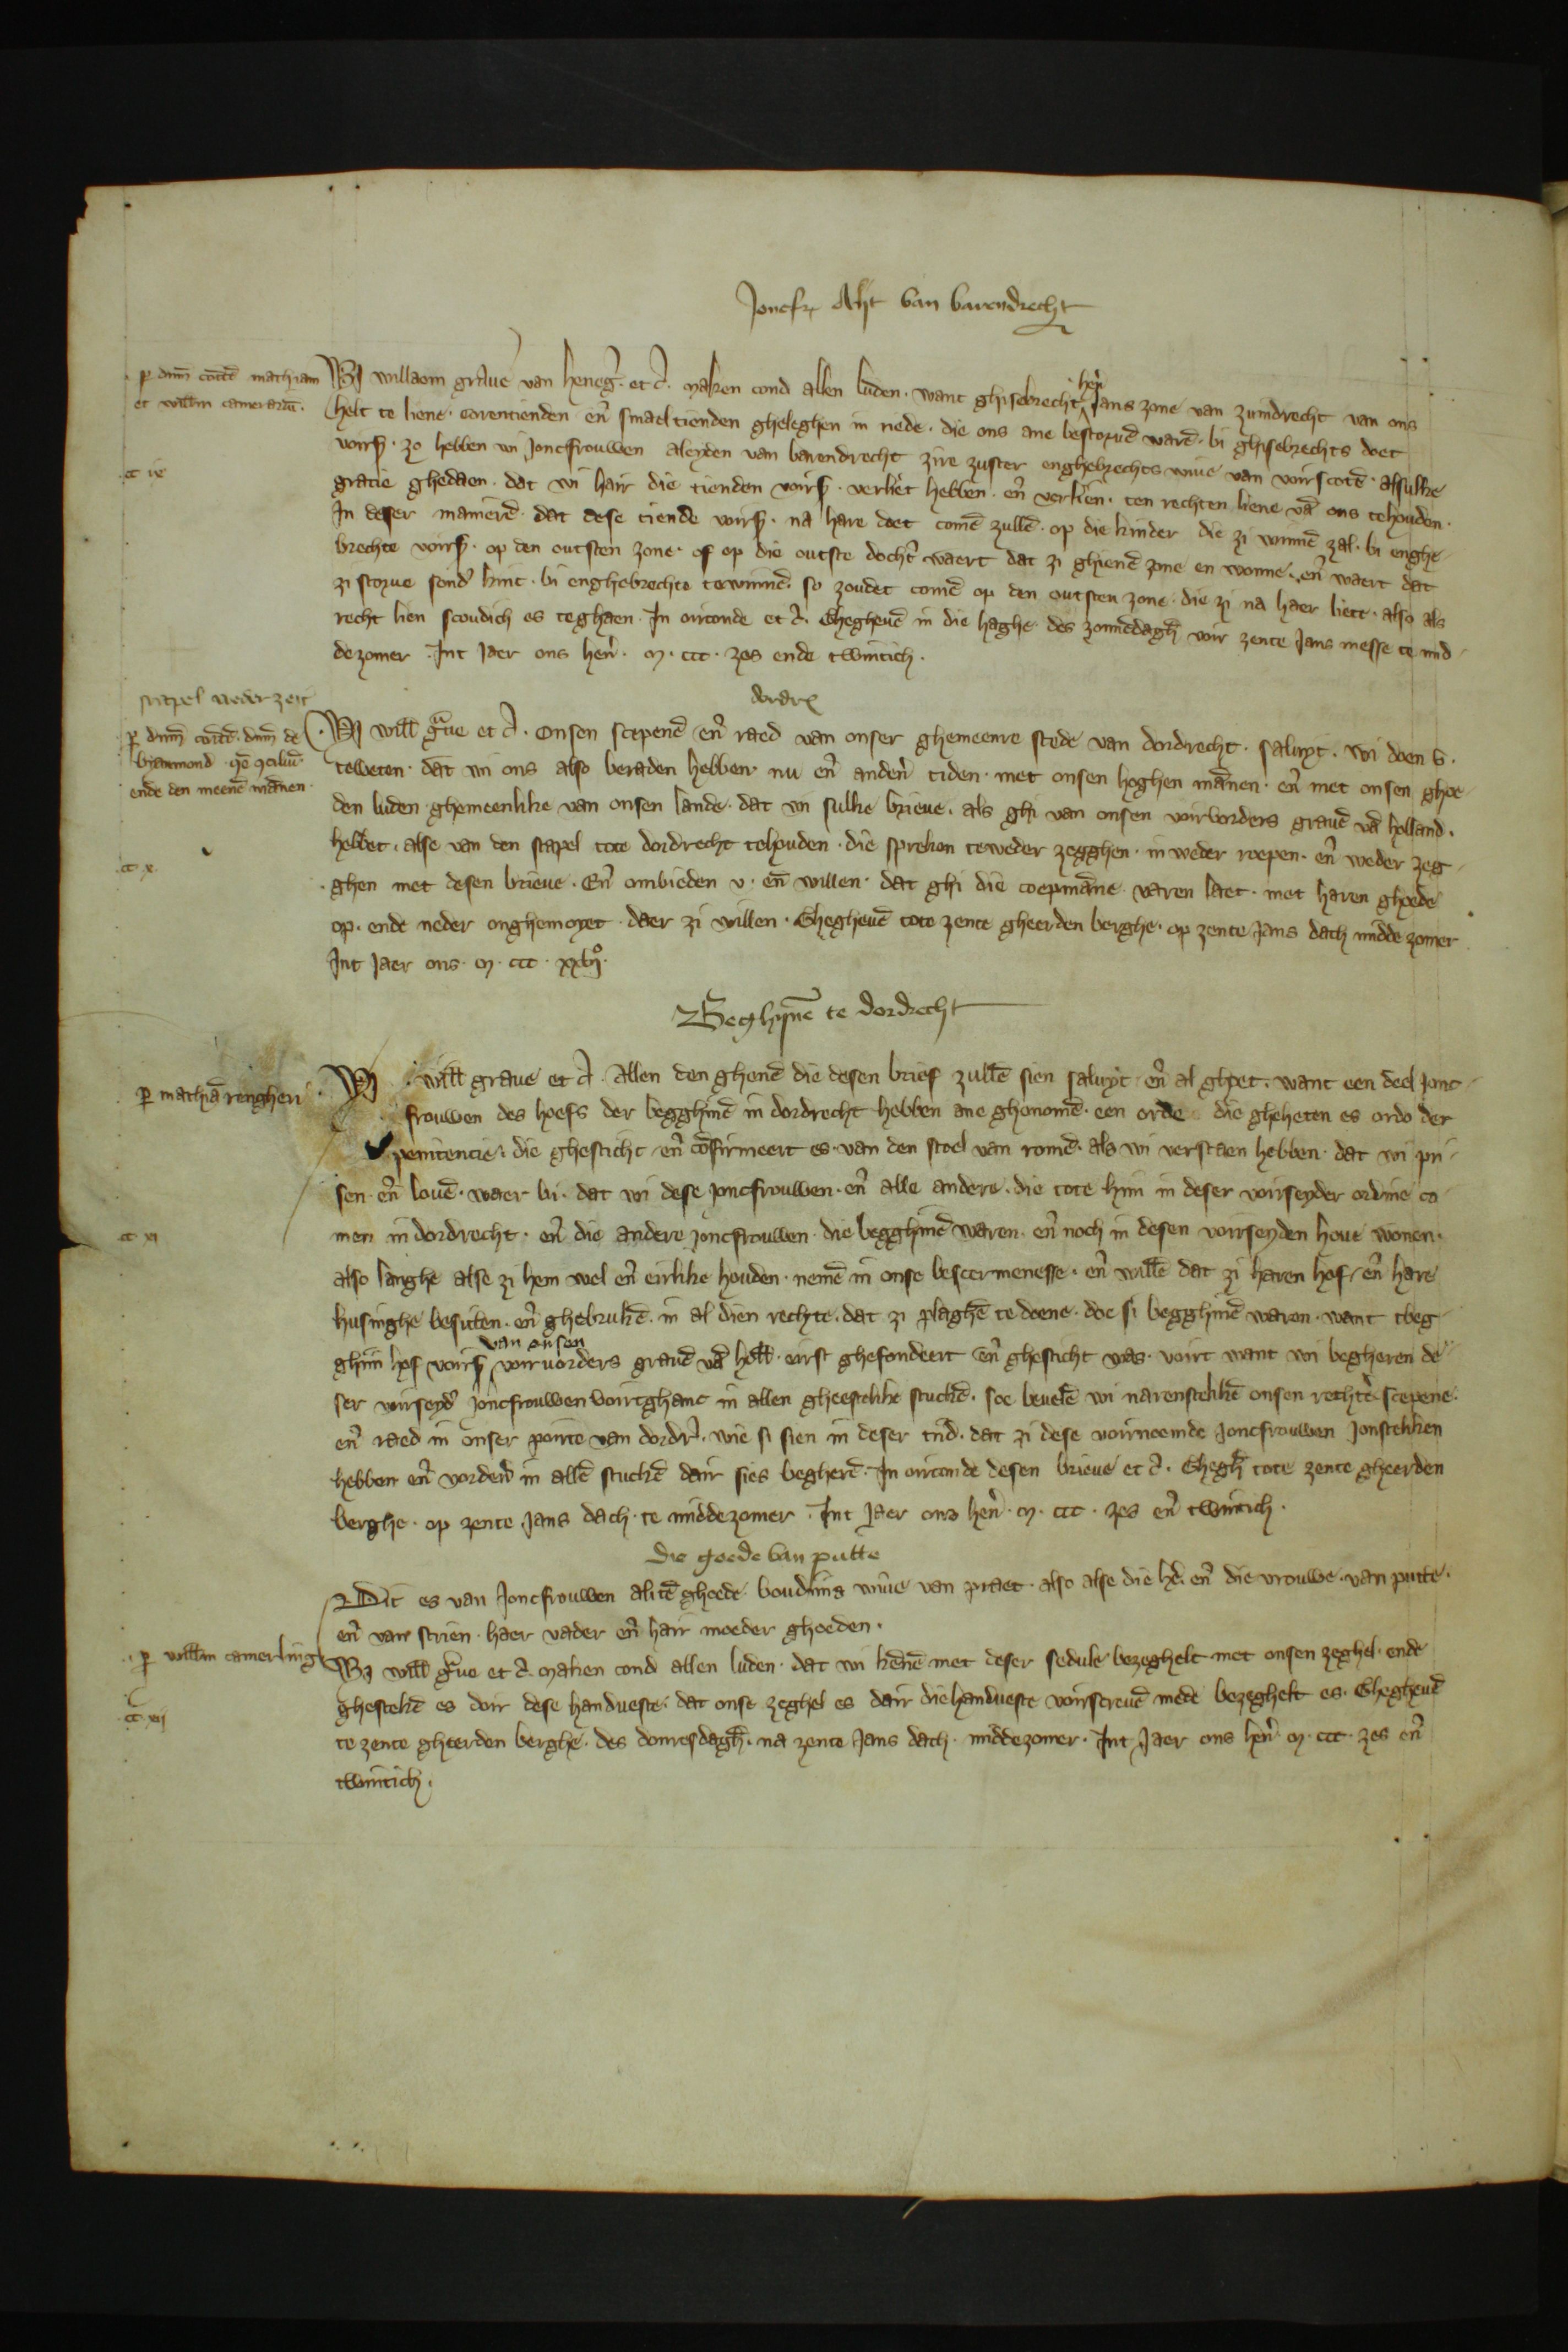 Joncfr Alijt van barendrecht
p dnm comite mathiam
et willm camerariu.
Wi willaem graue van heneg. et c. maken cond allen luden. want ghisebrecht hern Jans zone van zuindrecht van ons
helt te liene. corentienden en smaeltienden gheleghen in nede. die ons ane bestorue ware. bi ghisebrechts doet
voirs. zo hebben wi joncfrouwen aleyden van barendrecht zire zuster enghebrechts wiue van voirscote. alsulke
cc ix
gratie ghedaen. dat wi hair die tienden voirs. verliet hebben. en verlien. ten rechten liene va ons tehouden.
In deser maniere. dat dese tiende voirs. na hare doet come zulle. op die kinder die zi winne zal. bi enghe
brechte voirs. op den outsten zone. of op die outste docht waert dat zi ghiene zone en wonne. en waert dat
zi storue sond kint. bi enghebrechte tewinne. so zoudet come op den outsten zone. die zi na haer liete. also als
recht lien scoudich es teghaen. In oirconde et c. Ghegheue in die haghe. des zonnedagh voir zente Jans messe te mid
dezomer. Int jaer ons hern. m. ccc. zes ende twintich.
stapel weder zeit
dordr
p dnm comite. dnm de
ende den meene mannen.
Wi will graue et c. Onsen scepene en raed van onser ghemeenre stede van dordrecht. saluyt. wi doen v.
teweten. dat wi ons also beraden hebben. nu en anden tiden. met onsen hoghen mannen. en met onsen ghoe
den luden ghemeenlike van onsen lande. dat wi sulke brieue. als ghi van onsen voirvorders graue va holland.
cc x
hebbet. alse van den stapel tote dordrecht tehouden. die spreken teweder zegghen. in weder roepen. en weder zeg
ghen met desen brieue. En ombieden v. en willen. dat ghi die coepmanne varen laet. met haren ghoede
op. ende neder onghemoyet. daer zi willen. Ghegheue tote zente gheerden berghe. op zente Jans dach midde zomer
Int jaer ons. m. ccc. xxvj.
Beghyne te dordrecht
p mathia rengheri
Wi will graue et c. Allen den ghene die desen brief zulle sien saluyt en al ghoet. want een deel jonc
frouwen des hoefs der begghine in dordrecht hebben ane ghenome. een orde die gheheten es ordo der
penitencie. die ghesticht en confirmeert es. van den stoel van rome. als wi verstaen hebben. dat wi pri
sen en loue. waer bi. dat wi dese joncfrouwen. en alle andere. die tote him in deser voirseyder ordine co
cc xi
men in dordrecht. en die andere joncfrouwen die begghine waren. en noch in desen voirseyden houe wonen.
also langhe alse zi hem wel en eirlike houden. neme in onse beschermenesse. en wille dat zi haren hof en hare
husinghe besitten. en ghebruke. in al dien rechte. dat zi plaghe te doene. doe si begghine waren. want tbeg
ghin hof voirs van onsen voirvorders graue va holl. eirst ghefondeert en ghesticht was. voirt want wi begheren de
ser voirseyd joncfrouwen voirtghanc in allen gheestelike stucke. soe beuele wi narenstelike onsen rechte scepene.
en raed in onser poirte van dordr. wie si sien in deser tiid. dat zi dese voirnoemde joncfrouwen jonstelken
hebben en vorden in alle stucke dair sies beghere. In oirconde desen brieue et c. Ghegh tote zente gheerden
berghe. op zente Jans dach. te middezomer. Int jaer ons hern. m. ccc. zes en twintich.
die goede van putte
Dit es van joncfrouwen alite ghoede boudkins wiue van praet. also alse die he. en die vrouwe van putte.
en van strien. haer vader en hair moeder ghoeden.
p willm camerling
Wi will graue et c. maken cond allen luden. dat wi kenne met deser sedule bezeghelt met onsen zeghel. ende
ghesteke es doir dese handueste. dat onse zeghel es dair die handueste voirscreue mede bezeghelt es. Ghegheue
cc xij
te zente gheerden berghe. des donresdagh. na zente Jans dach. middezomer. Int jaer ons hern. m. ccc. zes en
twintich.